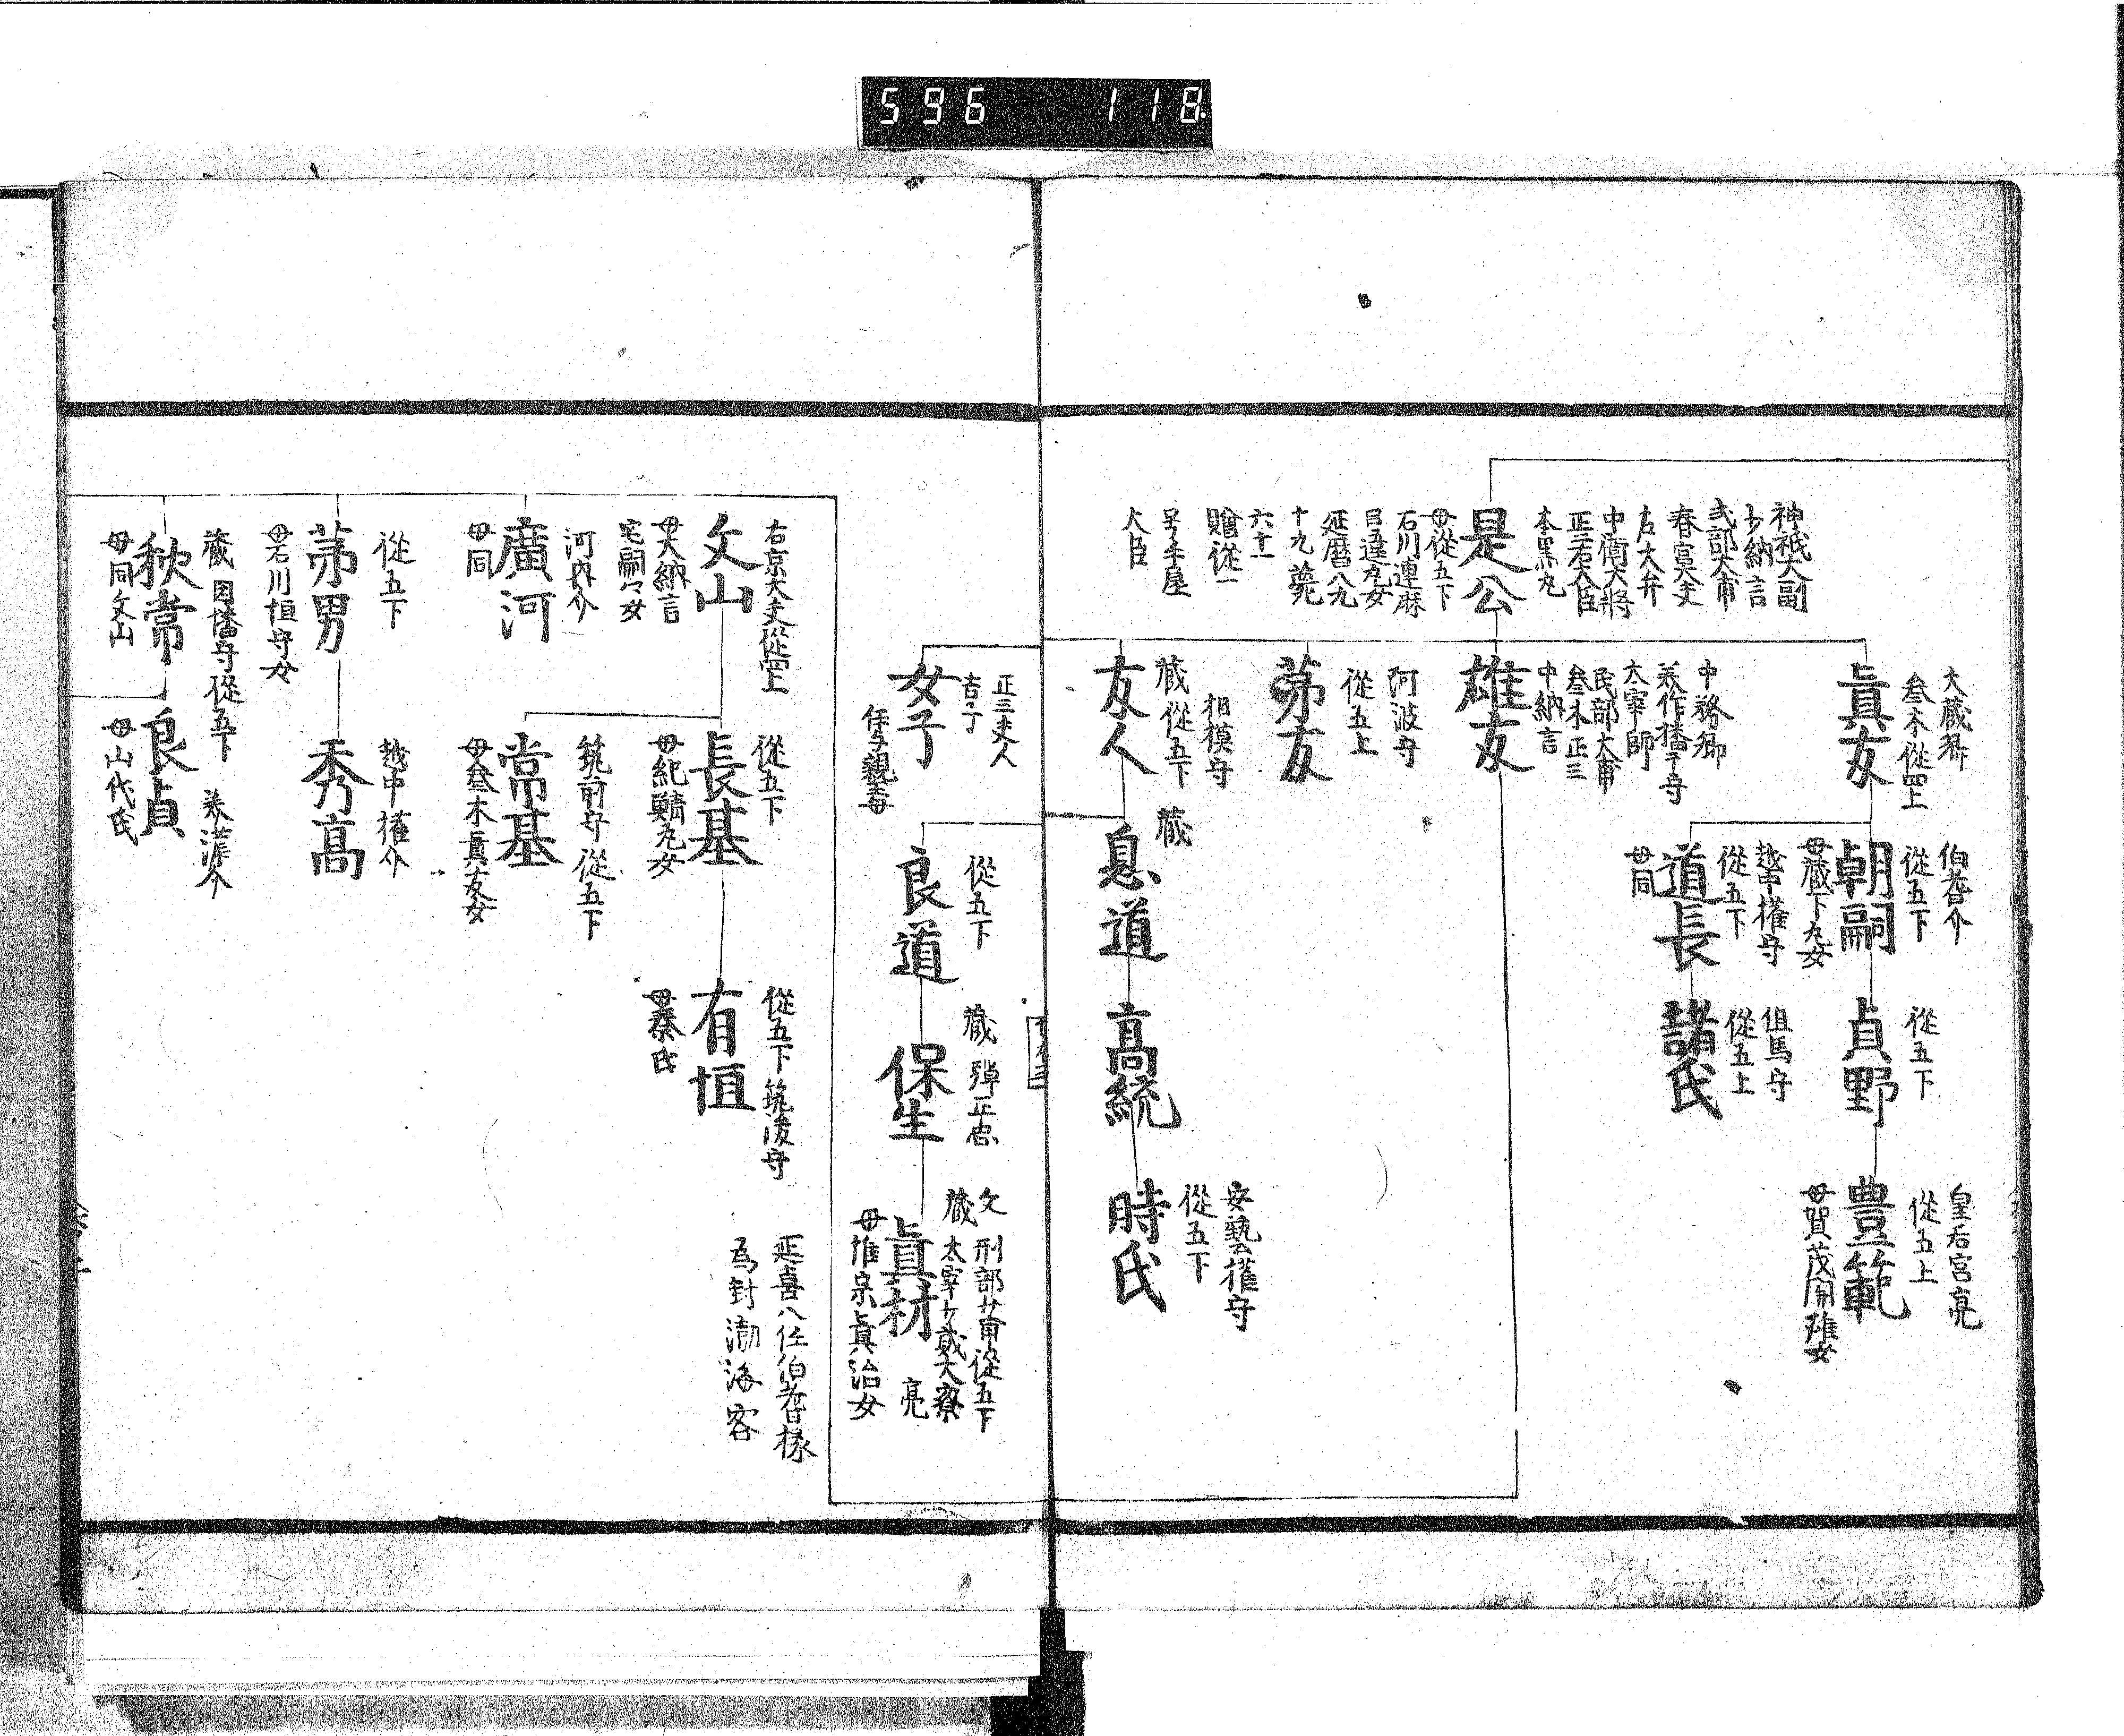 596 118
神祇大副
少納言
式部大甫
春宮大夫
左大弁
中衛大將
正三右大臣
本黒丸
是公
母從五下
石川連麻
呂五達丸女
延暦八九
十九薨
六十一
贈從一
号牛屋
大臣
大蔵卿
叅木從四上
眞友
伯耆介
從五下
朝嗣
母蔵下丸女
從五下
貞野
皇后宮亮
從五上
豊範
母賀茂開雄女
越中權守
從五下
道長
母同
但馬守
從五上
諸氏
中務卿
美作播广守
大宰帥
民部大甫
叅木正三
中納言
雄友
阿波守
從五上
苐友
相模守
蔵從五下
友人
蔵
息道
高統
安藝權守
從五下
時氏
正三夫人
吉子
女子
伊与親王母
從五下
良道
蔵 弾正忠
保生
文 刑部少甫從五下
蔵 太宰少貳大寮
亮
眞材
母惟宗眞治女
右京大夫從四上
文山
母大納言
宅嗣々女
從五下
長基
母紀鯖丸女
從五下筑後守
有恒
母秦氏
延喜八任伯耆掾
為封渤海客
河内介
廣河
母同
筑前守從五下
常基
母叅木眞友女
從五下
苐男
母石川恒守女
越中權介
秀高
蔵 因幡守從五下 美濃介
秋常
母同文山
良貞
母山代氏